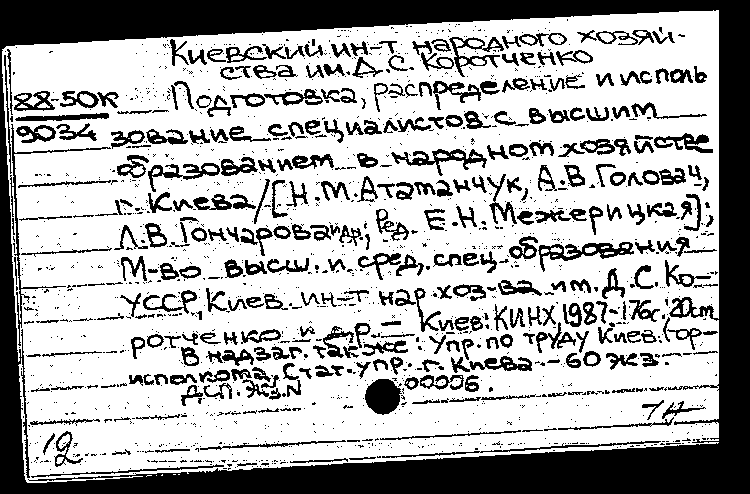 Киевский ин-т народного хозяй-
ства им. Д.С. Коротченко
88-50К Подготовка, распределение и исполь
9034 зование специалистов с высшим
образованием в народном хозяйстве
г. Киева / [Н.М. Атаманчук, А.В. Головач,
Л.В. Гончарова и др.; Ред. Е.Н. Межерицкая];
М-во высш. и сред. спец. образования
УССР, Киев. ин-т нар. хоз-ва им. Д.С. Ко-
ротченко и др. – Киев: КИНХ, 1987 – 176с.; 20см
В надзаг. также: Упр. по труду Киев. гор-
исполкома, Стат. упр. г. Киева. – 60 экз.
ДСП. Экз. N 00006.
12